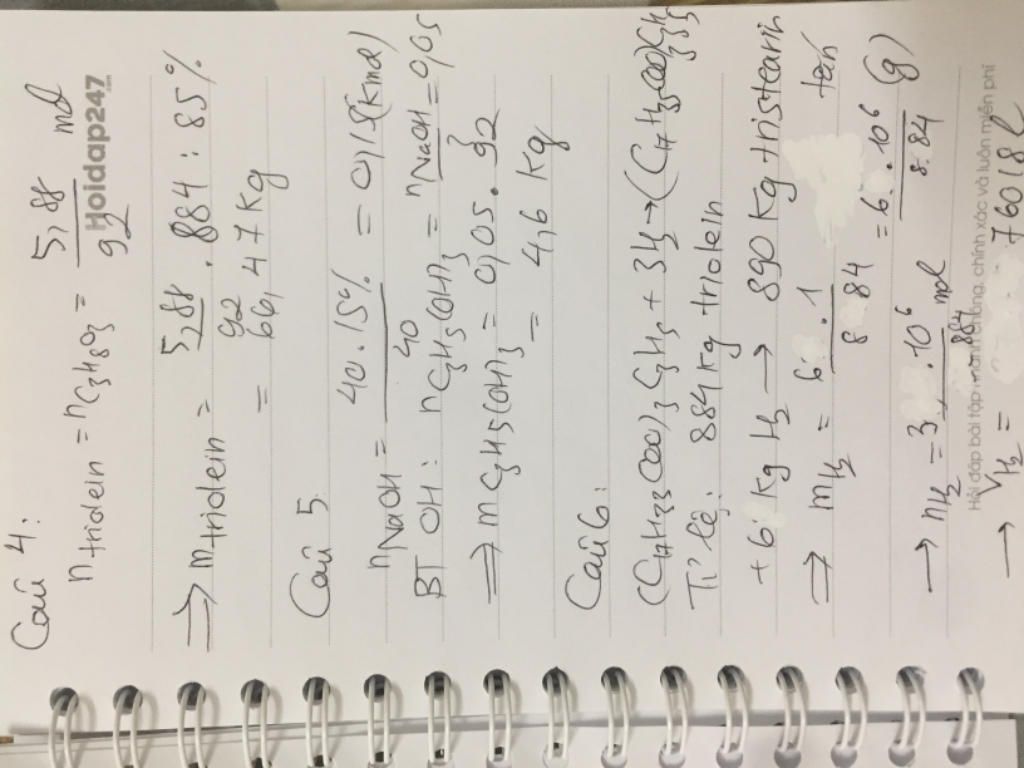 Câu 4:
n triolein = n C3H8O3 = 5,88 / 92 mol
Hoidap247
.com
=> m triolein = 5,88 / 92 . 884 : 85%
= 66,47 Kg
Câu 5
n NaOH = 40 . 15% / 40 = 0,15 (Kmol)
BT OH: n C3H5(OH)3 = n NaOH / 3 = 0,05
=> m C3H5(OH)3 = 0,05 . 92
= 4,6 Kg
Câu 6:
(C17H33COO)3C3H5 + 3H2 → (C17H35COO)3C3H5
Tỉ lệ: 884 Kg triolein
+ 6 Kg H2 → 890 Kg tristearin
=> mH2 = 6 . 1 / 884 tấn
= 6 . 10^6 / 884 (g)
→ nH2 = 3 . 10^6 / 884 mol
Hỏi đáp bài tập chính xác và luôn miễn phí
→ VH2 = 76018 l